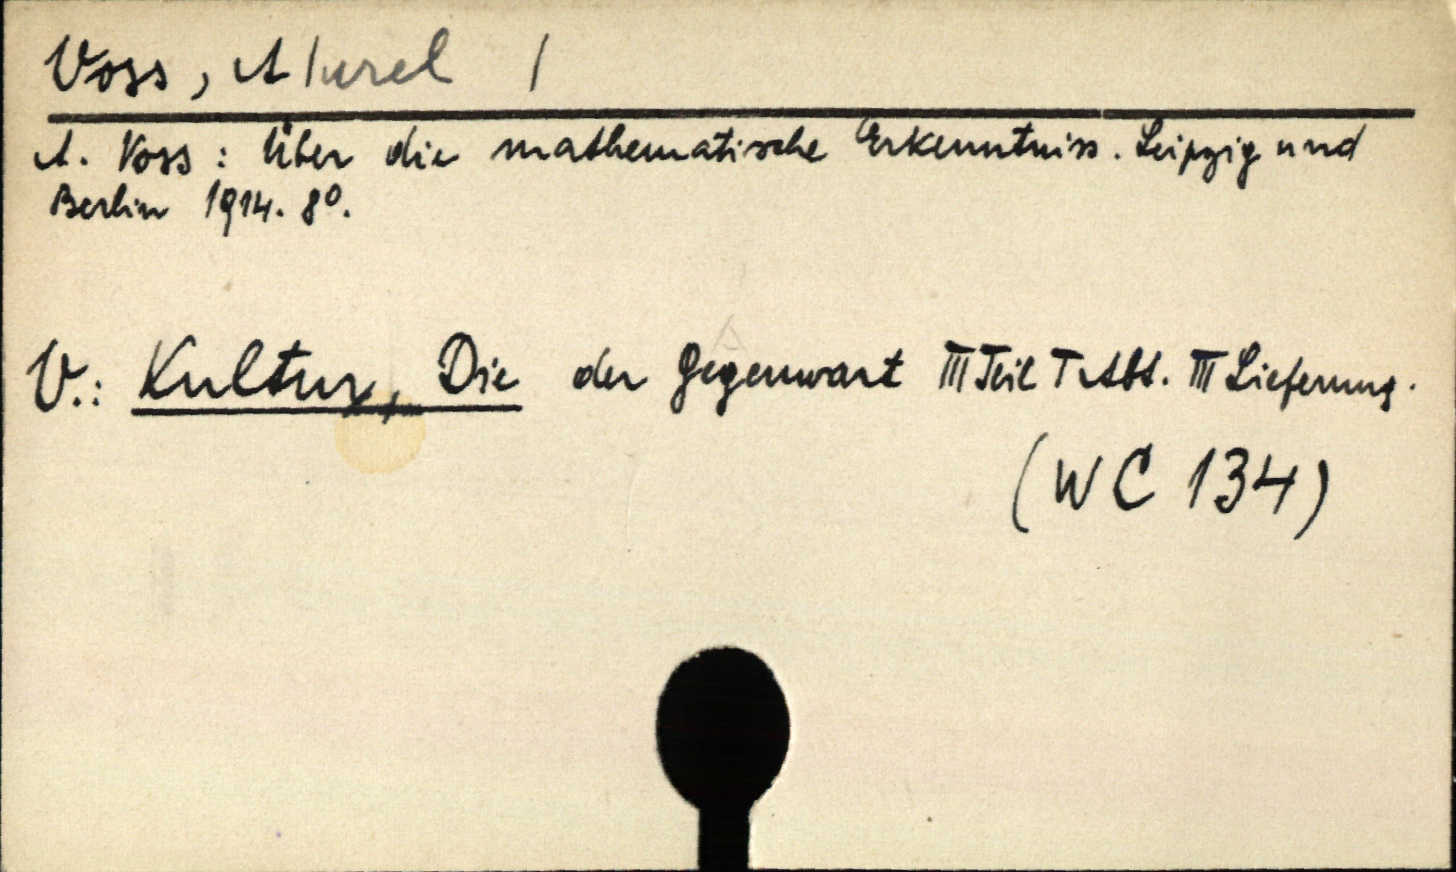 Voss, A|urel /
A. Voss: Über die mathematische Erkenntniss. Leipzig und
Berlin 1914. 8°.
V.: Kultur, Die der Gegenwart III Teil I Abt. III Lieferung.
(WC 134)